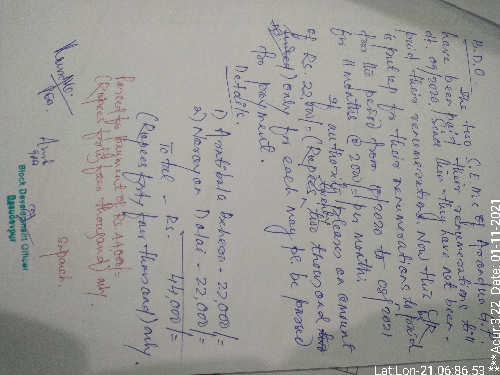 B.D.O
The two C.F.M.C of Anandpur G.P.
have been paid their remunerations till
dt. 09/2020. Since then they have not been
paid their remuneration. Now this C/R
is put up for their remunerations to paid
for the period from 10/2020 to 08/2021
for 11 months @ 2000/= per month.
If authority pleases an amount
of Rs. 22,000/= (Rupees twenty two thousand
only for each may pe be passed
for payment.
Details.
1) Behera - 22000/=
2) Narayan Dalai - 22,000/=
Total - Rs. 44,000/=
(Rupees forty four thousand) only.
Passed for payment of Rs. 44,000/=
(Rupees forty four thousand) only.
Block Development Officer
Lat:Lon-21.06:86.53
Date,01-11-2021